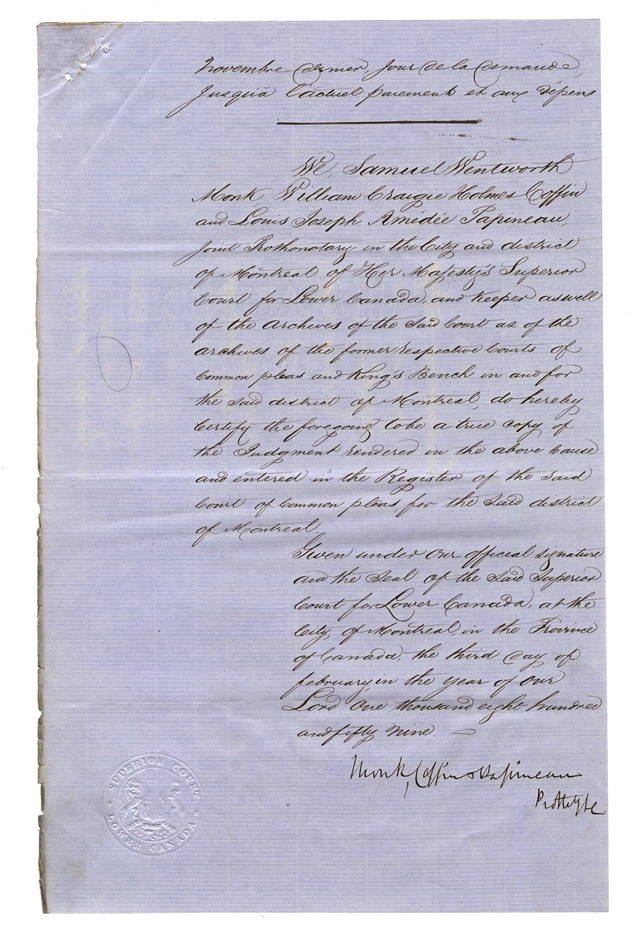 novembre dernier, jour de la demande,
jusqu'à l'actuel paiement et aux dépens
We, Samuel Wentworth
Monk, William Craigie Holmes Coffin
and Louis Joseph Amédée Papineau,
Joint Prothonotary in the City and district
of Montreal of Her Majesty's Superior
Court for Lower Canada, and Keeper as well
of the archives of the Said Court as of the
archives of the former respective Courts of
Common pleas and King's Bench in and for
the Said district of Montreal, do hereby
Certify the foregoing to be a true copy of
the Judgment rendered in the above Cause
and entered in the Register of the Said
Court of Common pleas for the Said district
of Montreal
Given under our official signature
and the Seal of the Said Superior
Court for Lower Canada, at the
City of Montreal, in the Province
of Canada, the third day of
february, in the year of our
Lord one thousand eight hundred
and fifty nine.
Monk, Coffin & Papineau
SUPERIOR COURT
LOWER CANADA